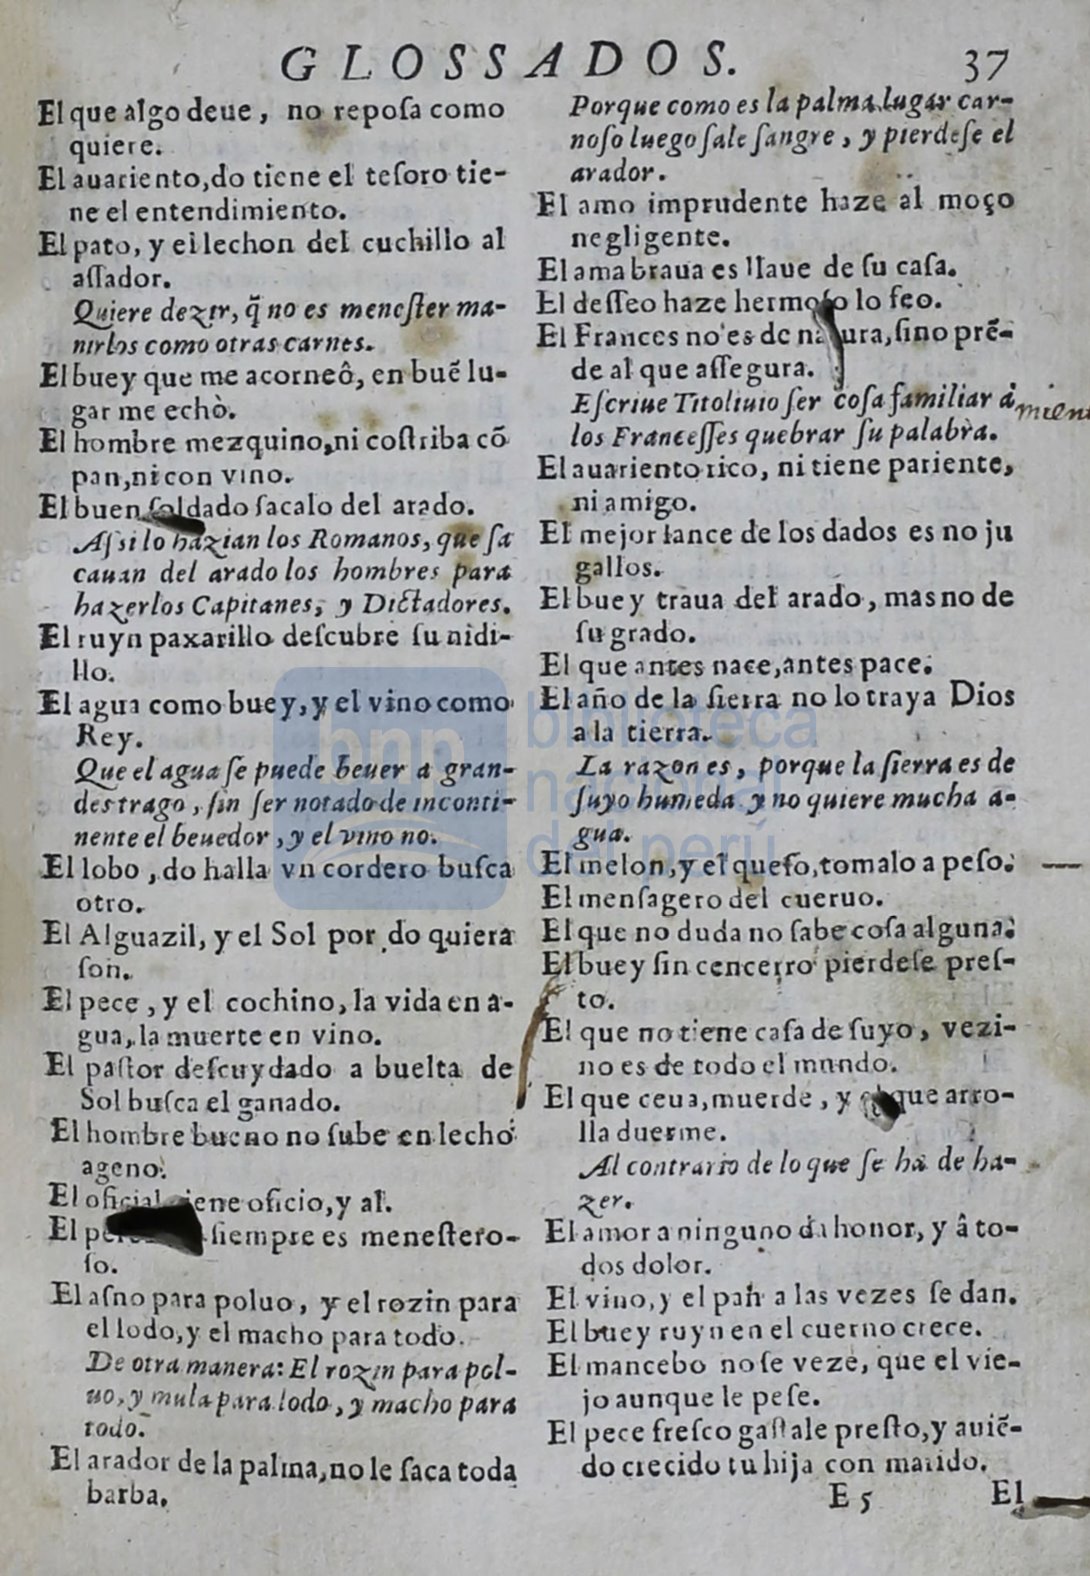 GLOSSADOS. 37
El que algo deue, no reposa como
quiere.
El auariento, do tiene el tesoro tie-
ne el entendimiento.
El pato, y el lechon del cuchillo al
assador.
Quiere dezir, q̃ no es menester ma-
nirlos como otras carnes.
El buey que me acorneô, en buẽ lu-
gar me echò.
El hombre mezquino, ni costriba cõ
pan, ni con vino.
El buen soldado sacalo del arado.
Assi lo hazian los Romanos, que sa
cauan del arado los hombres para
hazerlos Capitanes, y Dictadores.
El ruyn paxarillo descubre su nidi-
llo.
El agua como buey, y el vino como
Rey.
Que el agua se puede beuer a gran-
des trago, sin ser notado de inconti-
nente el beuedor, y el vino no.
El lobo, do halla vn cordero busca
otro.
El Alguazil, y el Sol por do quiera
son.
El pece, y el cochino, la vida en a-
gua, la muerte en vino.
El pastor descuydado a buelta de
Sol busca el ganado.
El hombre bueno no sube en lecho
ageno.
El oficial tiene oficio, y al.
El siempre es menestero-
so.
El asno para poluo, y el rozin para
el lodo, y el macho para todo.
De otra manera: El rozin para pol-
uo, y mula para lodo, y macho para
todo.
El arador de la palma, no le saca toda
barba.
Porque como es la palma lugar car-
noso luego sale sangre, y pierdese el
arador.
El amo imprudente haze al moço
negligente.
El ama braua es llaue de su casa.
El desseo haze hermoso lo feo.
El Frances no es de natura, sino prẽ-
de al que assegura.
Escriue Titoliuio ser cosa familiar á
mient
los Francesses quebrar su palabra.
El auariento rico, ni tiene pariente,
ni amigo.
El mejor lance de los dados es no ju
gallos.
El buey traua del arado, mas no de
su grado.
El que antes nace, antes pace.
El año de la sierra no lo traya Dios
a la tierra.
La razon es, porque la sierra es de
suyo humeda y no quiere mucha a-
gua.
El melon, y el queso, tomalo a peso.
El mensagero del cueruo.
El que no duda no sabe cosa alguna.
El buey sin cencerro pierdese pres-
to.
El que no tiene casa de suyo, vezi-
no es de todo el mundo.
El que ceua, muerde, y el que arro-
lla duerme.
Al contrario de lo que se ha de ha-
zer.
El amor a ninguno da honor, y â to-
dos dolor.
El vino, y el pan a las vezes se dan.
El buey ruyn en el cuerno crece.
El mancebo no se veze, que el vie-
jo aunque le pese.
El pece fresco gastale presto, y auiẽ-
do crecido tu hija con marido.
E 5 El
bnp biblioteca
nacional
del perú